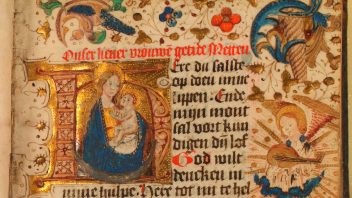 Onser lieuer vrouwe getide Metten
HEre du salste
op doen mine
lippen. Ende
mijn mont
sal vort kun
digen dij lof
God wilt
dencken in
mine hulpe. Here tot mi te hel